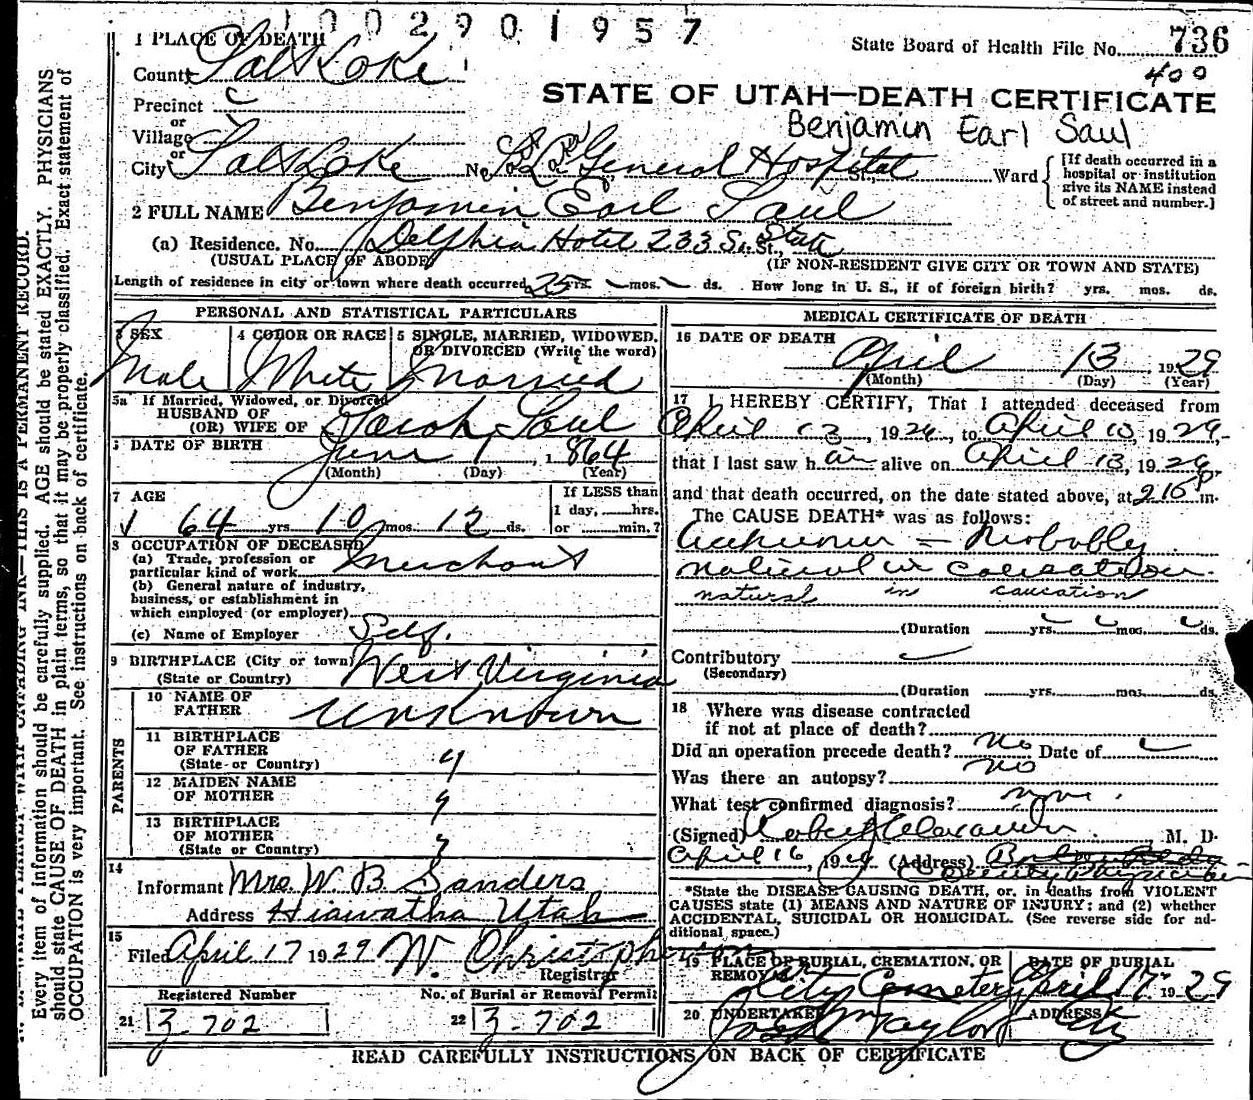 1002901957
1 PLACE OF DEATH
State Board of Health File No. 736
County Salt Lake
400
STATE OF UTAH—DEATH CERTIFICATE
Precinct
or
Village
Benjamin Earl Saul
or
City Salt Lake No. S. L. General Hospital St., Ward
[If death occurred in a hospital or institution give its NAME instead of street and number.]
2 FULL NAME Benjamin Earl Saul
(a) Residence. No. Delphia Hotel 233 So. State St.,
(USUAL PLACE OF ABODE) (IF NON-RESIDENT GIVE CITY OR TOWN AND STATE)
Length of residence in city or town where death occurred 25 yrs. mos. ds. How long in U. S., if of foreign birth? yrs. mos. ds.
PERSONAL AND STATISTICAL PARTICULARS
3 SEX 4 COLOR OR RACE 5 SINGLE, MARRIED, WIDOWED,
OR DIVORCED (Write the word)
Male White Married
5a If Married, Widowed, or Divorced
HUSBAND OF
(OR) WIFE OF Sarah Saul
6 DATE OF BIRTH June 1, 1864
(Month) (Day) (Year)
7 AGE
64 yrs 10 mos. 12 ds.
If LESS than
1 day, hrs.
or min.?
8 OCCUPATION OF DECEASED
(a) Trade, profession or
particular kind of work Merchant
(b) General nature of industry,
business, or establishment in
which employed (or employer)
(c) Name of Employer Self.
9 BIRTHPLACE (City or town)
(State or Country) West Virginia
PARENTS
10 NAME OF
FATHER Unknown
11 BIRTHPLACE
OF FATHER
(State or Country) "
12 MAIDEN NAME
OF MOTHER "
13 BIRTHPLACE
OF MOTHER
(State or Country) "
14
Informant Mrs. W. B. Sanders
Address Hiawatha Utah
15
Filed April 17 1929 W. Christopherson
Registrar
Registered Number No. of Burial or Removal Permit
21 3-702 22 3-702
MEDICAL CERTIFICATE OF DEATH
16 DATE OF DEATH
April 13, 1929
(Month) (Day) (Year)
17 I HEREBY CERTIFY, That I attended deceased from
April 13, 1929, to April 13, 1929
that I last saw him alive on April 13, 1929
and that death occurred, on the date stated above, at 215 P m.
The CAUSE DEATH* was as follows:
Probably
natural in causation
natural in caucation
(Duration yrs. mos. ds.
Contributory
(Secondary)
(Duration yrs. mos. ds.
18 Where was disease contracted
if not at place of death?
Did an operation precede death? no Date of
Was there an autopsy? no
What test confirmed diagnosis?
(Signed) Robert Alexander M. D.
April 16, 1929 (Address)
*State the DISEASE CAUSING DEATH, or, in deaths from VIOLENT
CAUSES state (1) MEANS AND NATURE OF INJURY: and (2) whether
ACCIDENTAL, SUICIDAL OR HOMICIDAL. (See reverse side for ad-
ditional space.)
19 PLACE OF BURIAL, CREMATION, OR REMOVAL DATE OF BURIAL
City Cemetery April 17 1929
20 UNDERTAKER ADDRESS
Taylor City
READ CAREFULLY INSTRUCTIONS ON BACK OF CERTIFICATE
N. B.—WRITE PLAINLY WITH UNFADING INK—THIS IS A PERMANENT RECORD.
Every item of information should be carefully supplied. AGE should be stated EXACTLY. PHYSICIANS
should state CAUSE OF DEATH in plain terms, so that it may be properly classified. Exact statement of
OCCUPATION is very important. See instructions on back of certificate.